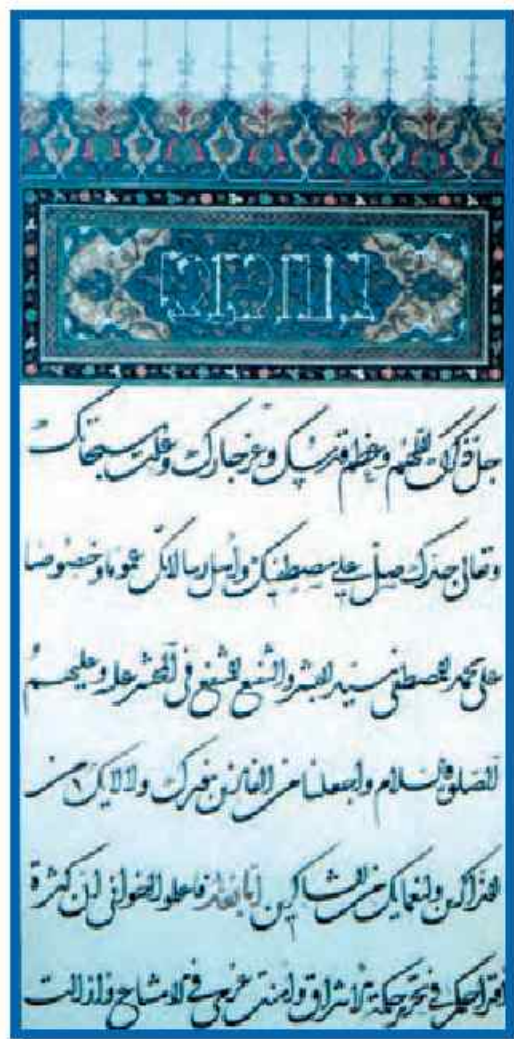 جل ذكرك اللهم وعظم قدسك وعز جارك وعلت سبحاتك
وتعالى جدك صل على مصطفيك وأهل رسالاتك عموما وخصوصا
على محمد المصطفى سيد البشر والشفيع المشفع في المحشر عليه وعليهم
الصلوة والسلام واجعلنا من الفائزين بنورك ولآلائك من
الذاكرين ولنعمائك من الشاكرين اما بعد فاعلموا اخواني ان كثرة
اقتراحكم في تحرير حكمة الاشراق واوهنت عزمي في الامتناع وازالت